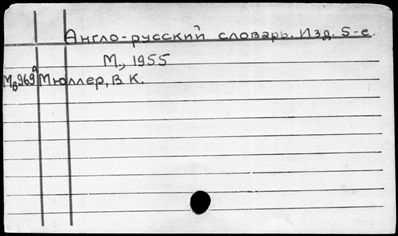 Англо-русский словарь. Изд. 5-е.
М., 1955
Мюллер, В. К.